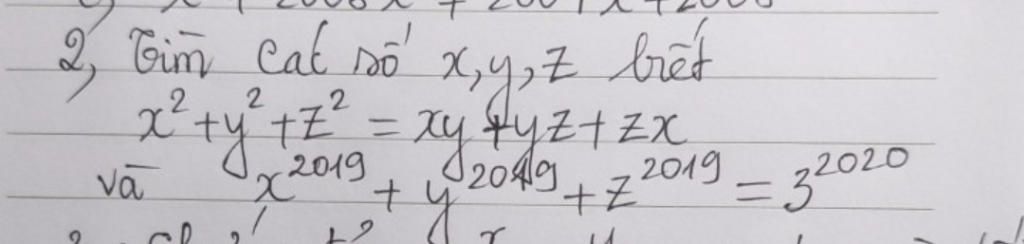 2, Tìm các số x, y, z biết
x² + y² + z² = xy + yz + zx
và x²⁰¹⁹ + y²⁰¹⁹ + z²⁰¹⁹ = 3²⁰²⁰